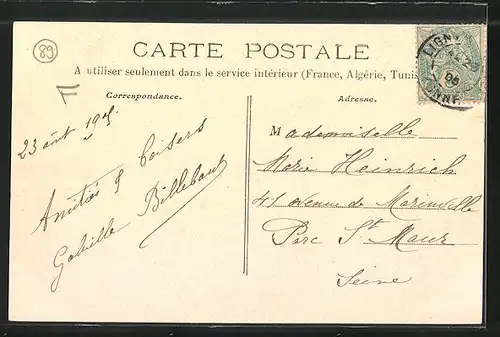 89
CARTE POSTALE
A utiliser seulement dans le service intérieur (France, Algérie, Tunis
Correspondance.
Adresse.
LIGN
YONN
23 août 1905.
Amitiés & Baisers
Billebault
Mademoiselle
Marie Heinrich
41 avenue de Marinville
Parc St Maur
Seine